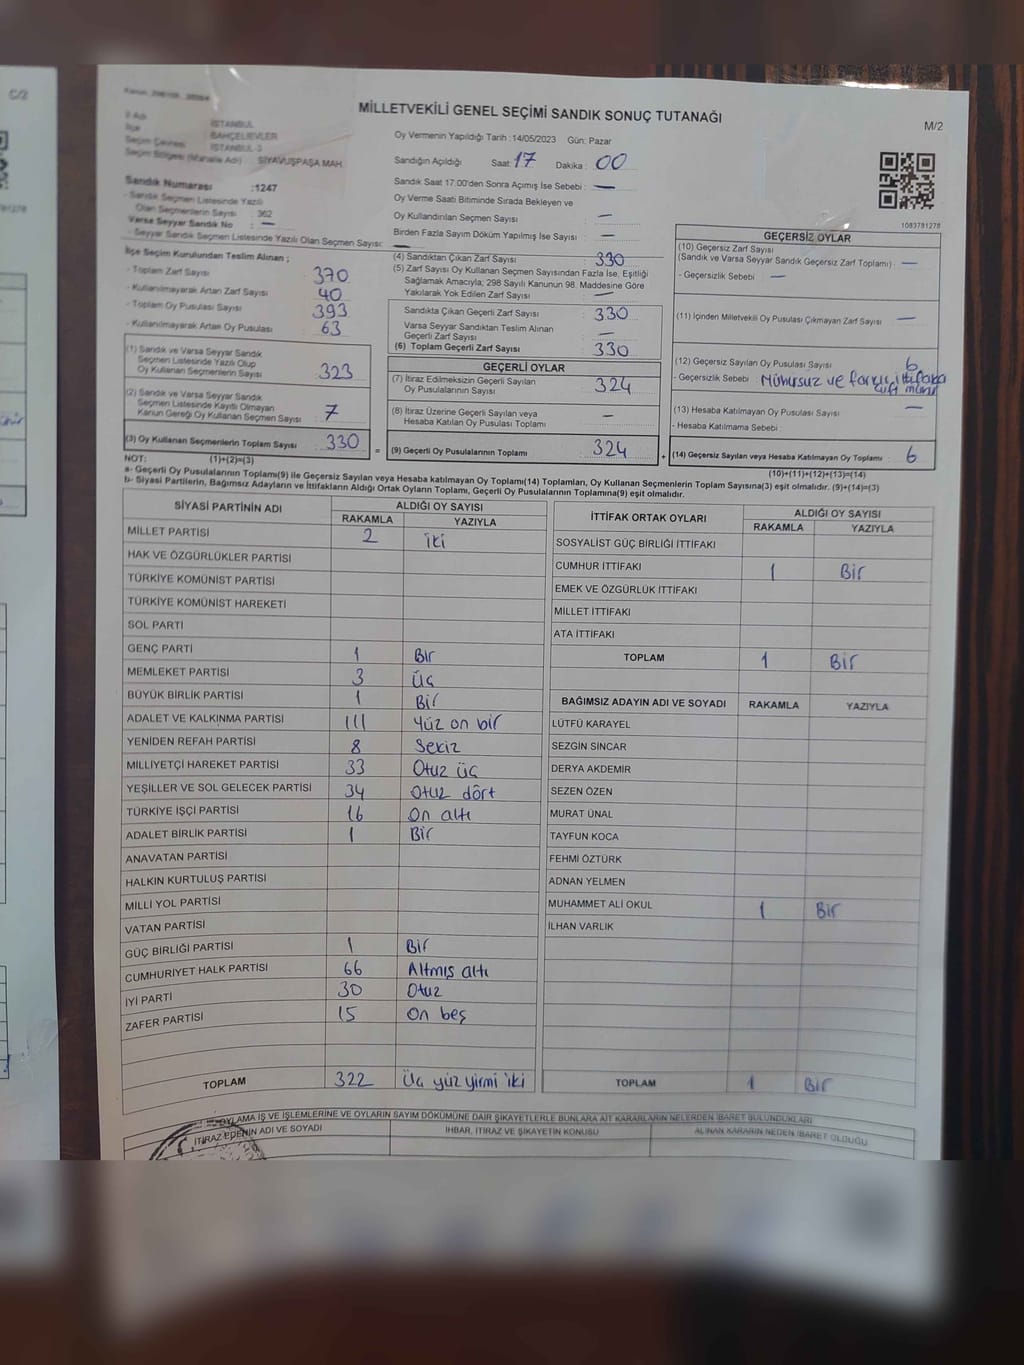 C/2
MİLLETVEKİLİ GENEL SEÇİMİ SANDIK SONUÇ TUTANAĞI
M/2
İl Adı İSTANBUL
İlçe BAHÇELİEVLER
Seçim Çevresi İSTANBUL-3
Seçim Bölgesi (Mahalle Adı) SİYAVUŞPAŞA MAH.
Sandık Numarası :1247
- Sandık Seçmen Listesinde Yazılı
Olan Seçmenlerin Sayısı : 362
Varsa Seyyar Sandık No : —
- Seyyar Sandık Seçmen Listesinde Yazılı Olan Seçmen Sayısı: —
Oy Vermenin Yapıldığı Tarih :14/05/2023 Gün: Pazar
Sandığın Açıldığı Saat: 17 Dakika : 00
Sandık Saat 17:00'den Sonra Açımış İse Sebebi : —
Oy Verme Saati Bitiminde Sırada Bekleyen ve
Oy Kullandırılan Seçmen Sayısı : —
Birden Fazla Sayım Döküm Yapılmış İse Sayısı : —
1083781278
İlçe Seçim Kurulundan Teslim Alınan ;
- Toplam Zarf Sayısı : 370
- Kullanılmayarak Artan Zarf Sayısı : 40
- Toplam Oy Pusulası Sayısı : 393
- Kullanılmayarak Artan Oy Pusulası : 63
(1) Sandık ve Varsa Seyyar Sandık
Seçmen Listesinde Yazılı Olup
Oy Kullanan Seçmenlerin Sayısı : 323
(2) Sandık ve Varsa Seyyar Sandık
Seçmen Listesinde Kayıtlı Olmayan
Kanun Gereği Oy Kullanan Seçmen Sayısı : 7
(3) Oy Kullanan Seçmenlerin Toplam Sayısı : 330
(4) Sandıktan Çıkan Zarf Sayısı : 330
(5) Zarf Sayısı Oy Kullanan Seçmen Sayısından Fazla İse, Eşitliği
Sağlamak Amacıyla; 298 Sayılı Kanunun 98. Maddesine Göre
Yakılarak Yok Edilen Zarf Sayısı : —
Sandıkta Çıkan Geçerli Zarf Sayısı : 330
Varsa Seyyar Sandıktan Teslim Alınan
Geçerli Zarf Sayısı : —
(6) Toplam Geçerli Zarf Sayısı : 330
GEÇERLİ OYLAR
(7) İtiraz Edilmeksizin Geçerli Sayılan
Oy Pusulalarının Sayısı : 324
(8) İtiraz Üzerine Geçerli Sayılan veya
Hesaba Katılan Oy Pusulası Toplamı : —
= (9) Geçerli Oy Pusulalarının Toplamı : 324
GEÇERSİZ OYLAR
(10) Geçersiz Zarf Sayısı
(Sandık ve Varsa Seyyar Sandık Geçersiz Zarf Toplamı) : —
- Geçersizlik Sebebi : —
(11) İçinden Milletvekili Oy Pusulası Çıkmayan Zarf Sayısı : —
(12) Geçersiz Sayılan Oy Pusulası Sayısı : 6
- Geçersizlik Sebebi : Mühürsüz ve farklı ittifaka
çift mühür
(13) Hesaba Katılmayan Oy Pusulası Sayısı : —
- Hesaba Katılmama Sebebi :
+ (14) Geçersiz Sayılan veya Hesaba Katılmayan Oy Toplamı : 6
NOT: (1)+(2)=(3) (10)+(11)+(12)+(13)=(14)
a- Geçerli Oy Pusulalarının Toplamı(9) ile Geçersiz Sayılan veya Hesaba katılmayan Oy Toplamı(14) Toplamları, Oy Kullanan Seçmenlerin Toplam Sayısına(3) eşit olmalıdır. (9)+(14)=(3)
b- Siyasi Partilerin, Bağımsız Adayların ve İttifakların Aldığı Ortak Oyların Toplamı, Geçerli Oy Pusulalarının Toplamına(9) eşit olmalıdır.
SİYASİ PARTİNİN ADI ALDIĞI OY SAYISI
RAKAMLA YAZIYLA
MİLLET PARTİSİ 2 iki
HAK VE ÖZGÜRLÜKLER PARTİSİ
TÜRKİYE KOMÜNİST PARTİSİ
TÜRKİYE KOMÜNİST HAREKETİ
SOL PARTİ
GENÇ PARTİ 1 Bir
MEMLEKET PARTİSİ 3 Üç
BÜYÜK BİRLİK PARTİSİ 1 Bir
ADALET VE KALKINMA PARTİSİ 111 Yüz on bir
YENİDEN REFAH PARTİSİ 8 Sekiz
MİLLİYETÇİ HAREKET PARTİSİ 33 Otuz üç
YEŞİLLER VE SOL GELECEK PARTİSİ 34 Otuz dört
TÜRKİYE İŞÇİ PARTİSİ 16 On altı
ADALET BİRLİK PARTİSİ 1 Bir
ANAVATAN PARTİSİ
HALKIN KURTULUŞ PARTİSİ
MİLLİ YOL PARTİSİ
VATAN PARTİSİ
GÜÇ BİRLİĞİ PARTİSİ 1 Bir
CUMHURİYET HALK PARTİSİ 66 Altmış altı
İYİ PARTİ 30 Otuz
ZAFER PARTİSİ 15 On beş
TOPLAM 322 Üç yüz yirmi iki
İTTİFAK ORTAK OYLARI ALDIĞI OY SAYISI
RAKAMLA YAZIYLA
SOSYALİST GÜÇ BİRLİĞİ İTTİFAKI
CUMHUR İTTİFAKI 1 Bir
EMEK VE ÖZGÜRLÜK İTTİFAKI
MİLLET İTTİFAKI
ATA İTTİFAKI
TOPLAM 1 Bir
BAĞIMSIZ ADAYIN ADI VE SOYADI RAKAMLA YAZIYLA
LÜTFÜ KARAYEL
SEZGİN SİNCAR
DERYA AKDEMİR
SEZEN ÖZEN
MURAT ÜNAL
TAYFUN KOCA
FEHMİ ÖZTÜRK
ADNAN YELMEN
MUHAMMET ALİ OKUL 1 Bir
İLHAN VARLIK
TOPLAM 1 Bir
OYLAMA İŞ VE İŞLEMLERİNE VE OYLARIN SAYIM DÖKÜMÜNE DAİR ŞİKAYETLERLE BUNLARA AİT KARARLARIN NELERDEN İBARET BULUNDUKLARI
İTİRAZ EDENİN ADI VE SOYADI İHBAR, İTİRAZ VE ŞİKAYETİN KONUSU ALINAN KARARIN NEDEN İBARET OLDUĞU